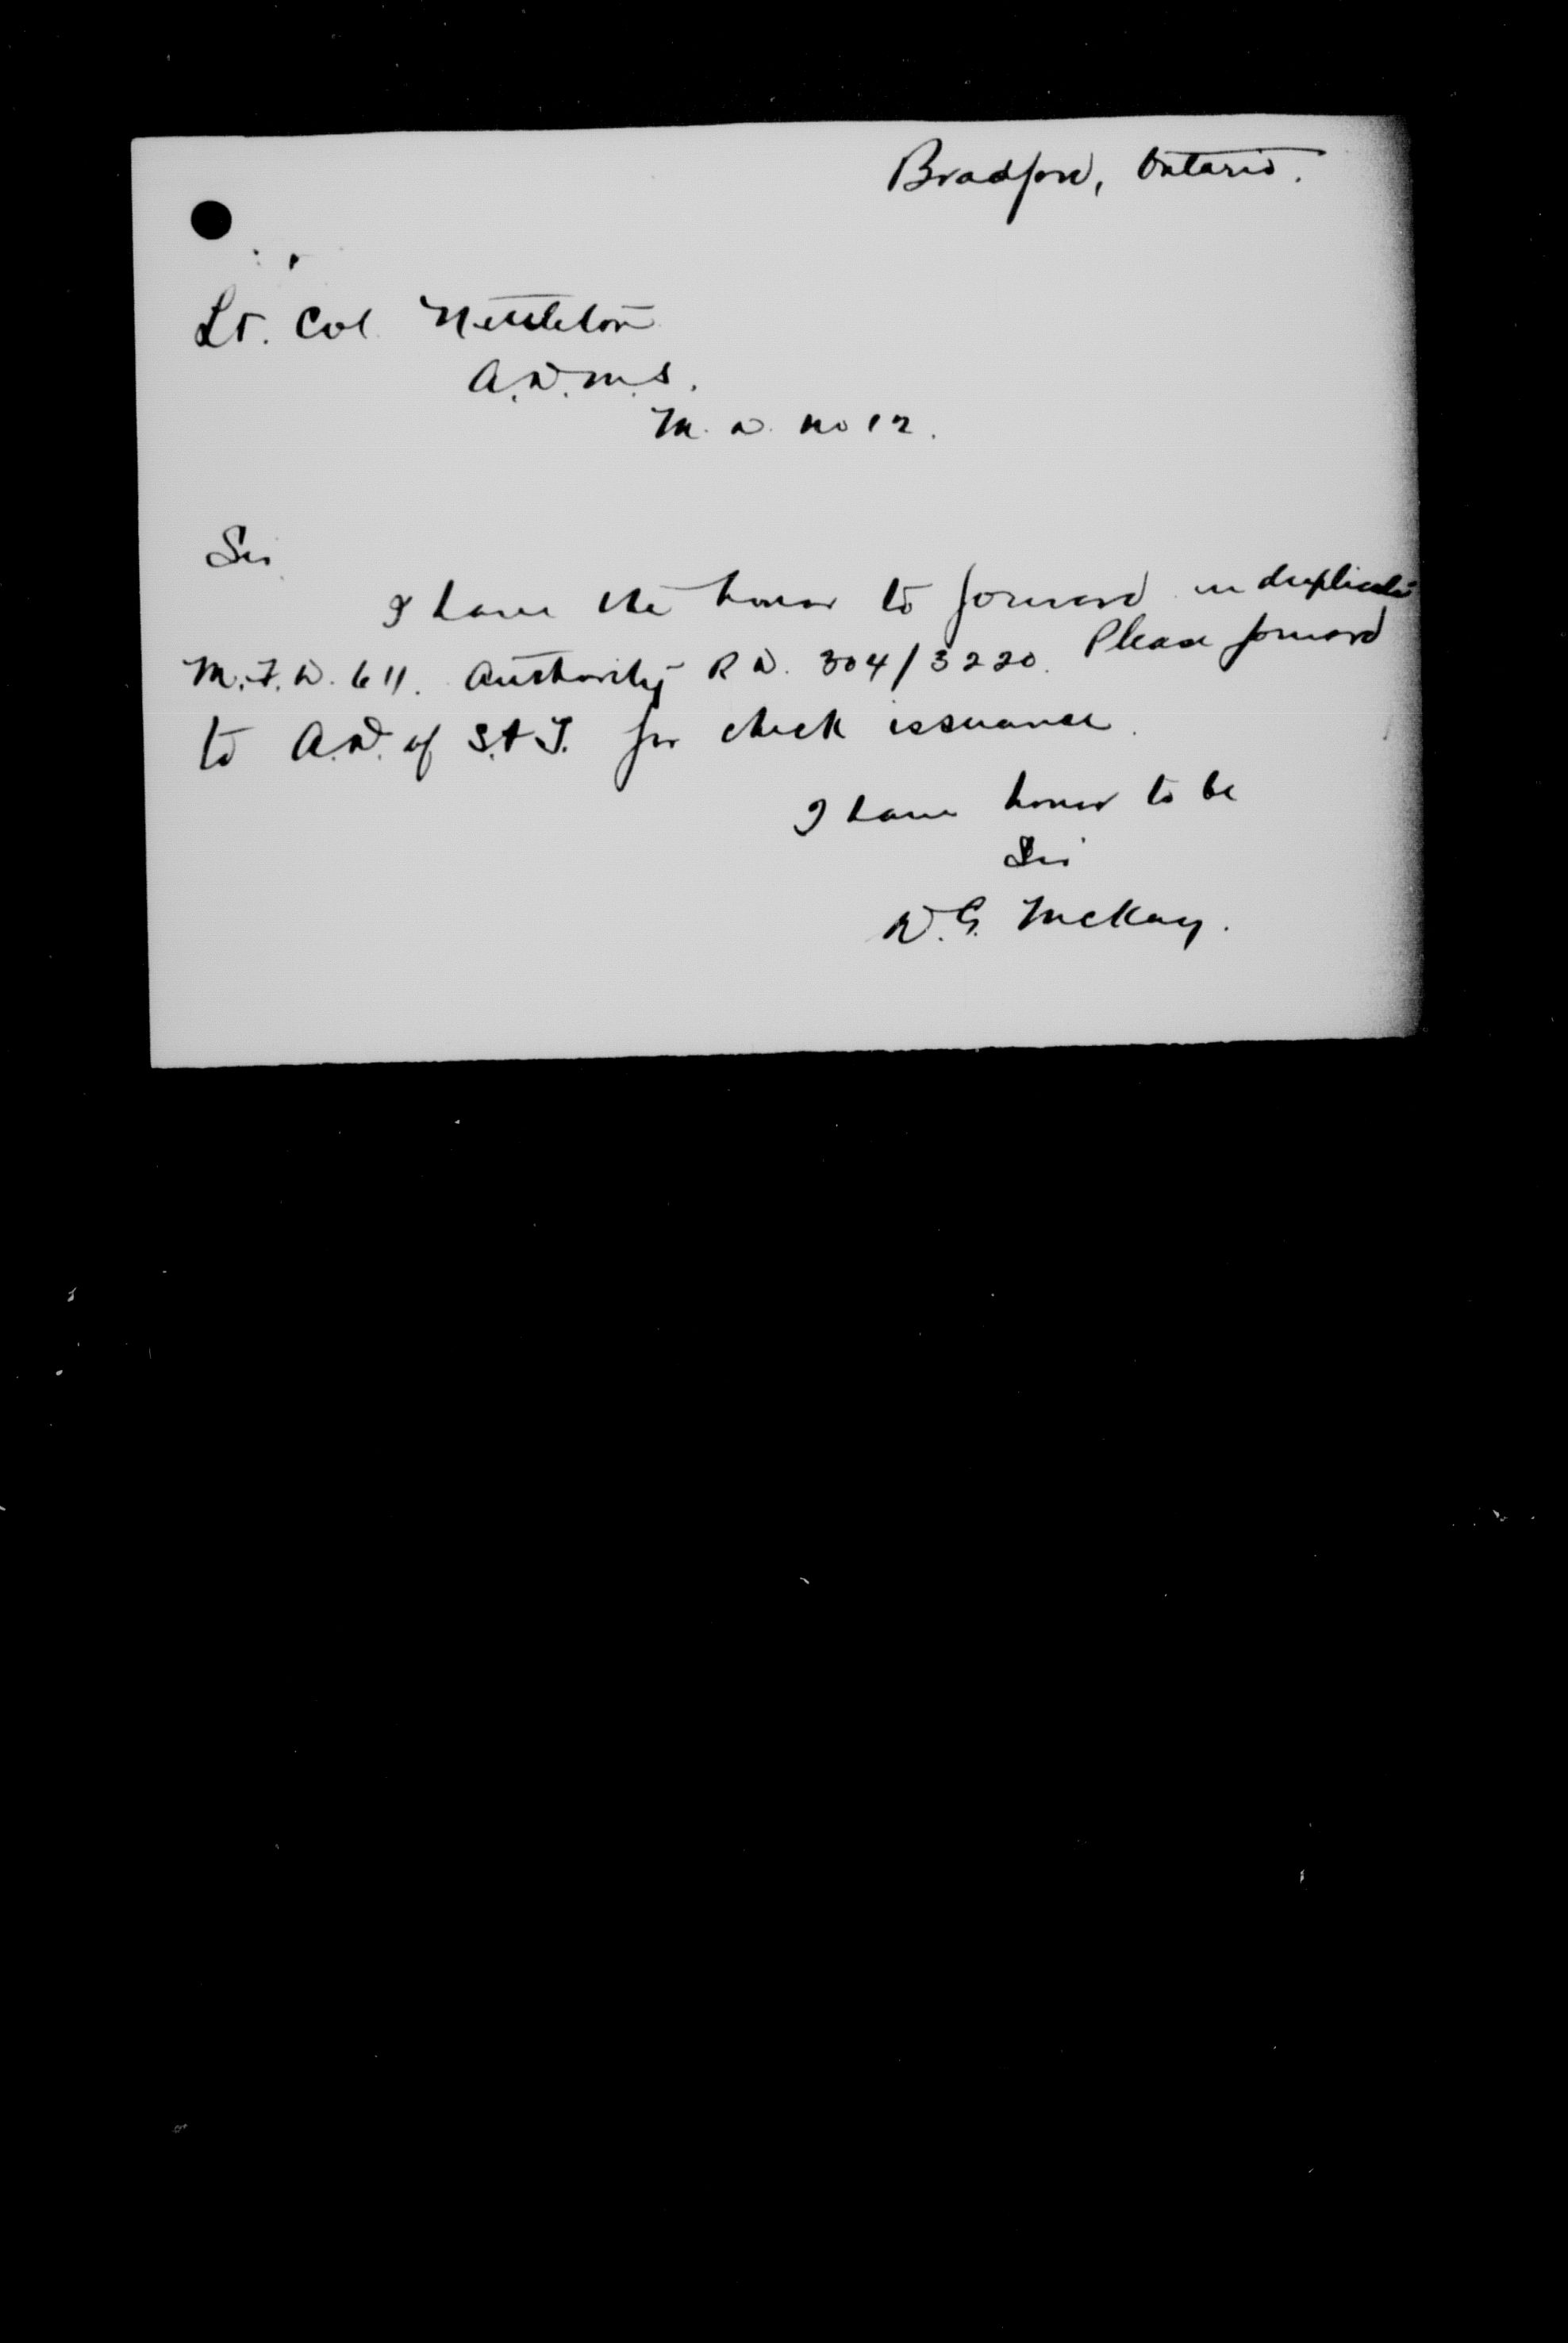 Bradford, Ontario.
Lt. Col. Nettleton
A.D.M.S.
M. D. No 12.
Sir
I have the honor to forward in duplicate
M.F.W. 611. Authority R D. 304/3220. Please forward
to A.D. of S. & T. for check issuance.
I have honor to be
Sir
D. G. McKay.